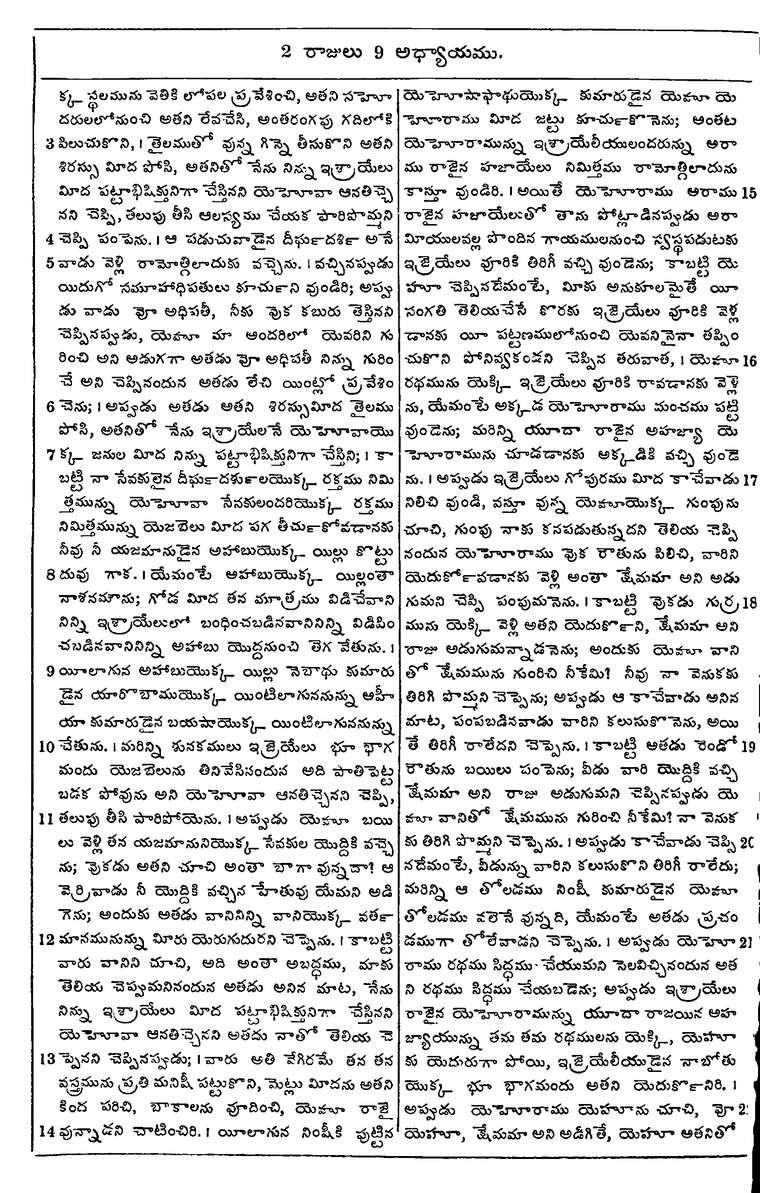 2 రాజులు 9 అధ్యాయము.
క్క స్థలమును వెతికి లోపల ప్రవేశించి, అతని సహెూ
దరులలోనుంచి అతని లేవచేసి, అంతరంగపు గదిలోకి
3 పిలుచుకొని, । తైలముతో వున్న గిన్నె తీసుకొని అతని
శిరస్సు మీద పోసి, అతనితో నేను నిన్ను ఇశ్రాయేలు
మీద పట్టాభిషిక్తునిగా చేస్తినని యెహెూవా ఆనతిచ్చె
నని చెప్పి, తలుపు తీసి ఆలస్యము చేయక పారిపొమ్మని
4 చెప్పి పంపెను. । ఆ పడుచువాడైన దీర్ఘదర్శి అనే
5 వాడు వెళ్లి రామోత్గిలాదుకు వచ్చెను. । వచ్చినప్పుడు
యిదుగో సమూహాధిపతులు కూర్చుని వుండిరి; అప్పు
డు వాడు వో అధిపతీ, నీకు వుక కబురు తెస్తినని
చెప్పినప్పుడు, యెహూ మా అందరిలో యెవరిని గు
రించి అని అడుగగా అతడు వో అధిపతీ నిన్ను గురిం
చే అని చెప్పినందున అతడు లేచి యింట్లో ప్రవేశిం
6 చెను; । అప్పుడు అతడు అతని శిరస్సుమీద తైలము
పోసి, అతనితో నేను ఇశ్రాయేలనే యెహెూవాయొ
7 క్క జనుల మీద నిన్ను పట్టాభిషిక్తునిగా చేస్తిని; । కా
బట్టి నా సేవకులైన దీర్ఘదర్శులయొక్క రక్తము నిమి
త్తమున్ను యెహెూవా సేవకులందరియొక్క రక్తము
నిమిత్తమున్ను యెజబెలు మీద పగ తీర్చుకోవడానకు
నీవు నీ యజమానుడైన అహాబుయొక్క యిల్లు కొట్టు
8 దువు గాక. । యేమంటే ఆహాబుయొక్క యిల్లంతా
నాశనమౌను; గోడ మీద తన మూత్రము విడిచేవాని
నిన్ని ఇశ్రాయేలులో బంధించబడినవానినిన్ని విడిపిం
చబడినవానినిన్ని అహాబు యొద్దనుంచి తెగ వేతును. ।
9 యీలాగున అహాబుయొక్క యిల్లు నెబాథు కుమారు
డైన యారొబాముయొక్క యింటిలాగుననున్ను ఆహీ
యా కుమారుడైన బయషాయొక్క యింటిలాగుననున్ను
10 చేతును. । మరిన్ని శునకములు ఇజ్రెయేలు భూ భాగ
మందు యెజబెలును తినివేసినందున అది పాతిపెట్ట
బడక పోవును అని యెహెూవా ఆనతిచ్చెనని చెప్పి,
11 తలుపు తీసి పారిపోయెను. । అప్పుడు యెహూ బయి
లు వెళ్లి తన యజమానునియొక్క సేవకుల యొద్దికి వచ్చె
ను; వుకడు అతని చూచి అంతా బాగా వున్నదా? ఆ
వెర్రివాడు నీ యొద్దికి వచ్చిన హేతువు యేమని అడి
గెను; అందుకు అతడు వానినిన్ని వానియొక్క వర్త
12 మానమునున్ను మీరు యెరుగుదురని చెప్పెను. । కాబట్టి
వారు వానిని చూచి, అది అంతా అబద్ధము, మాకు
తెలియ చెప్పుమనినందున అతడు అనిన మాట, నేను
నిన్ను ఇశ్రాయేలు మీద పట్టాభిషిక్తునిగా చేస్తినని
యెహెూవా ఆనతిచ్చెనని అతడు నాతో తెలియ చె
13 ప్పెనని చెప్పినప్పుడు; । వారు అతి వేగిరమే తన తన
వస్త్రమును ప్రతి మనిషీ పట్టుకొని, మెట్లు మీదను అతని
కింద పరిచి, బాకాలను వూదించి, యెహూ రాజై
14 వున్నాడని చాటించిరి. । యీలాగున నింషీకి పుట్టిన
యెహెూషాఫాథుయొక్క కుమారుడైన యెహూ యె
హెూరాము మీద జట్టు కూర్చుకొనెను; అంతట
యెహెూరామున్ను ఇశ్రాయేలీయులందరున్ను అరా
ము రాజైన హజాయేలు నిమిత్తము రామోత్గిలాదును
కాస్తూ వుండిరి. । అయితే యెహెూరాము అరాము 15
రాజైన హజాయేలుతో తాను పోట్లాడినప్పుడు అరా
మీయులవల్ల పొందిన గాయములనుంచి స్వస్థపడుటకు
ఇజ్రెయేలు వూరికి తిరిగీ వచ్చి వుండెను; కాబట్టి యె
హూ చెప్పినదేమంటే, మీకు అనుకూలమైతే యీ
సంగతి తెలియచేసే కొరకు ఇజ్రెయేలు వూరికి వెళ్ల
డానకు యీ పట్టణములోనుంచి యెవనినైనా తప్పిం
చుకొని పోనివ్వకండని చెప్పిన తరువాత, । యెహూ 16
రథమును యెక్కి ఇజ్రెయేలు వూరికి రావడానకు వెళ్లె
ను, యేమంటే అక్కడ యెహెూరాము మంచము పట్టి
వుండెను; మరిన్ని యూదా రాజైన అహజ్యా యె
హెూరామును చూడడానకు అక్కడికి వచ్చి వుండె
ను. । అప్పుడు ఇజ్రెయేలు గోపురము మీద కాచేవాడు 17
నిలిచి వుండి, వస్తూ వున్న యెహూయొక్క గుంపును
చూచి, గుంపు నాకు కనపడుతున్నదని తెలియ చెప్పి
నందున యెహెూరాము వుక రౌతును పిలిచి, వారిని
యెదుర్కోవడానకు వెళ్లి అంతా క్షేమమా అని అడు
గుమని చెప్పి పంపుమనెను. । కాబట్టి వుకడు గుర్ర 18
మును యెక్కి వెళ్లి అతని యెదుర్కొని, క్షేమమా అని
రాజు అడుగుమన్నాడనెను; అందుకు యెహూ వాని
తో క్షేమమును గురించి నీకేమి? నీవు నా వెనుకకు
తిరిగి పొమ్మని చెప్పెను; అప్పుడు ఆ కాచేవాడు అనిన
మాట, పంపబడినవాడు వారిని కలుసుకొనెను, అయి
తే తిరిగీ రాలేదని చెప్పెను. । కాబట్టి ఆతడు రెండో 19
రౌతును బయిలు పంపెను; వీడు వారి యొద్దికి వచ్చి
క్షేమమా అని రాజు అడుగుమని చెప్పినప్పుడు యె
హూ వానితో క్షేమమును గురించి నీకేమి? నా వెనుక
కు తిరిగి పొమ్మని చెప్పెను. । అప్పుడు కాచేవాడు చెప్పి 20
నదేమంటే, వీడున్ను వారిని కలుసుకొని తిరిగీ రాలేదు;
మరిన్ని ఆ తోలడము నింషీ కుమారుడైన యెహూ
తోలడము వలెనే వున్నది, యేమంటే అతడు ప్రచం
డముగా తోలేవాడని చెప్పెను. । అప్పుడు యెహెూ 21
రాము రథము సిద్ధము చేయుమని సెలవిచ్చినందున అత
ని రథము సిద్ధము చేయబడెను; అప్పుడు ఇశ్రాయేలు
రాజైన యెహెూరామున్ను యూదా రాజయిన అహ
జ్యాయున్ను తమ తమ రథములను యెక్కి, యెహూ
కు యెదురుగా పోయి, ఇజ్రెయేలీయుడైన నాబోతు
యొక్క భూ భాగమందు అతని యెదుర్కొనిరి. ।
అప్పుడు యెహెూరాము యెహూను చూచి, వో 2
యెహూ, క్షేమమా అని అడిగితే, యెహూ అతనితో